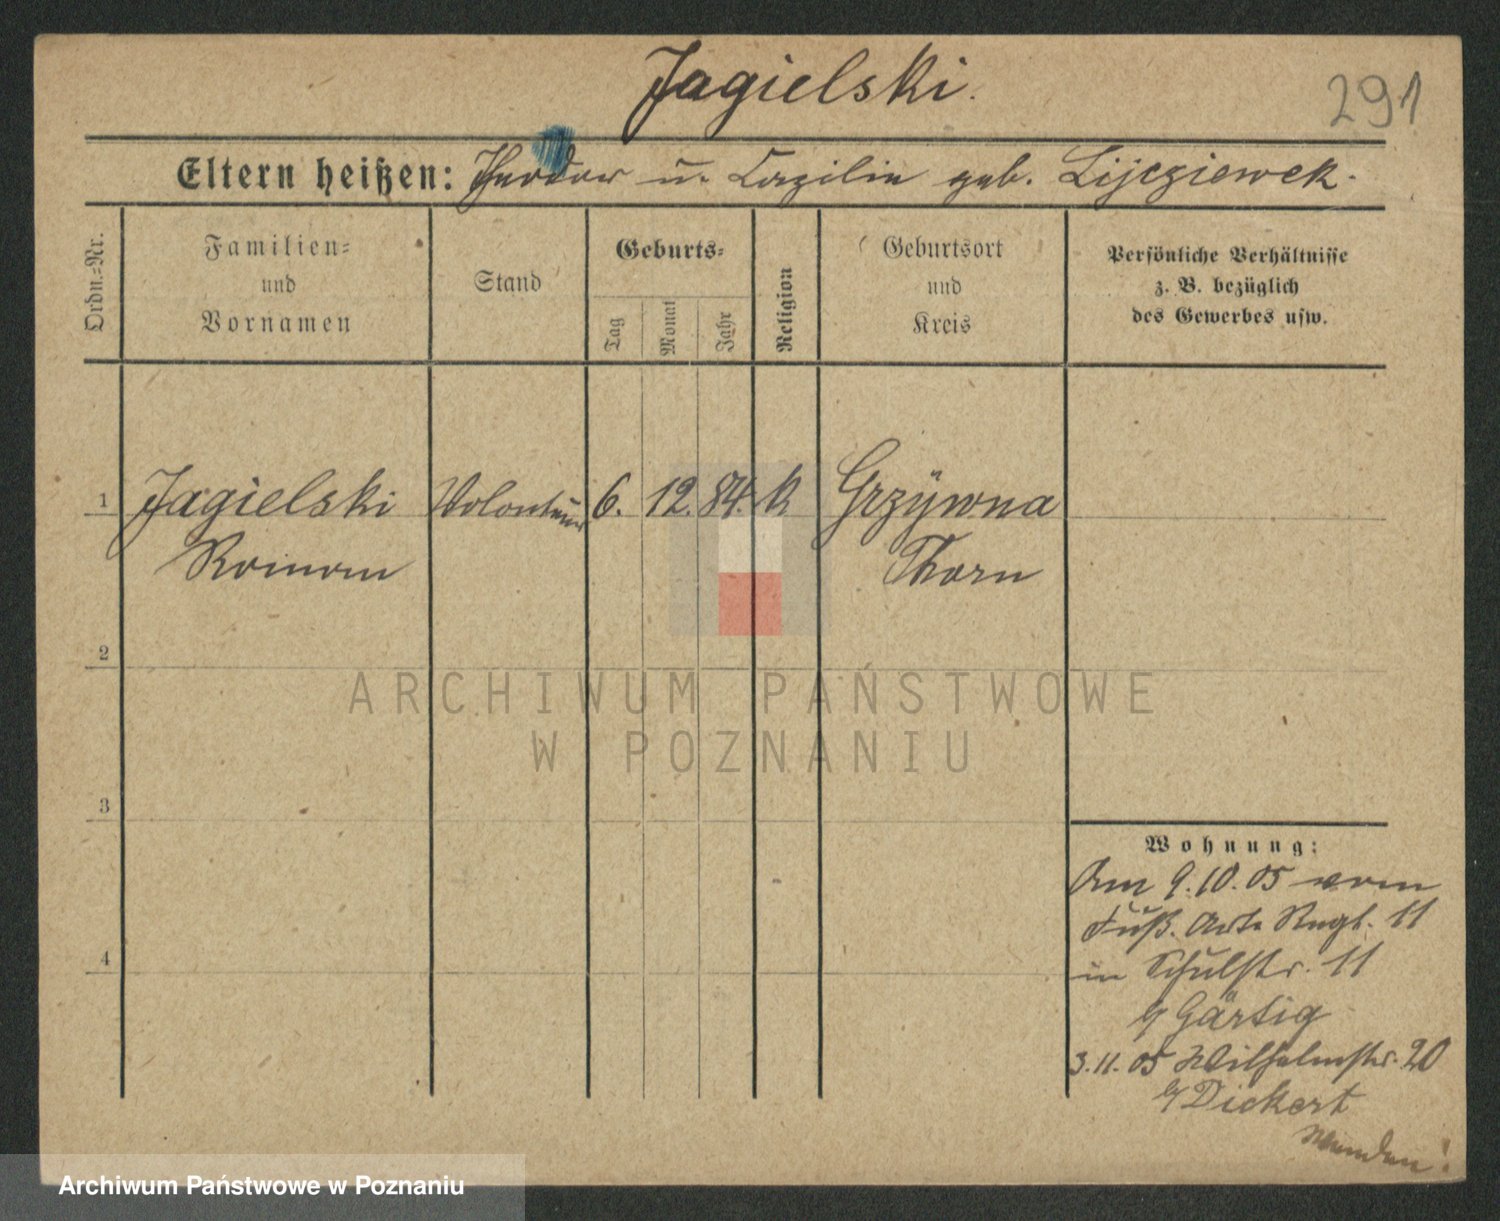 Jagielski.
291
Eltern heißen: Theodor u. Cazilie geb. Lijeziewek.
Ordn.=Nr.
Familien=
und
Vornamen
Stand
Geburts=
Tag
Monat
Jahr
Religion
Geburtsort
und
Kreis
Persönliche Verhältnisse
z. B. bezüglich
des Gewerbes usw.
1 Jagielski Volontär 6. 12. 84. k Grzywna
Roman Thorn
2
ARCHIWUM PAŃSTWOWE
W POZNANIU
3
Wohnung:
Am 9.10.05 vom
Fuß. Art. Regt. 11
in Schulstr. 11
b/ Gärtig
4
3.11.05 Wilhelmstr. 20
b/ Dickert
Wenden!
Archiwum Państwowe w Poznaniu